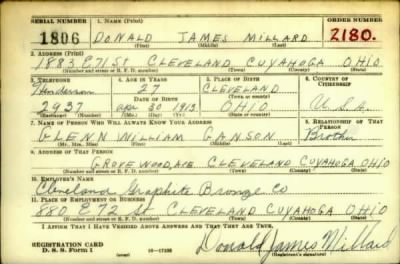 SERIAL NUMBER 1. NAME (Print) ORDER NUMBER
1806 DONALD JAMES MILLARD 2180.
(First) (Middle) (Last)
2. ADDRESS (Print)
1883 E 71 St CLEVELAND CUYAHOGA OHIO
(Number and street or R. F. D. number) (Town) (County) (State)
3. TELEPHONE 4. AGE IN YEARS 5. PLACE OF BIRTH 6. COUNTRY OF CITIZENSHIP
Henderson 27 CLEVELAND
(Town or county)
DATE OF BIRTH
2937 Apr 30 1913 OHIO U.S.A.
(Exchange) (Number) (Mo.) (Day) (Yr.) (State or country)
7. NAME OF PERSON WHO WILL ALWAYS KNOW YOUR ADDRESS 8. RELATIONSHIP OF THAT PERSON
GLENN WILLIAM GANSON Brother
(Mr., Mrs., Miss) (First) (Middle) (Last)
9. ADDRESS OF THAT PERSON
GROVEWOOD AVE CLEVELAND CUYAHOGA OHIO
(Number and street or R. F. D. number) (Town) (County) (State)
10. EMPLOYER'S NAME
Cleveland Graphite Bronze Co
11. PLACE OF EMPLOYMENT OR BUSINESS
880 E 72 St CLEVELAND CUYAHOGA OHIO
(Number and street or R. F. D. number) (Town) (County) (State)
I AFFIRM THAT I HAVE VERIFIED ABOVE ANSWERS AND THAT THEY ARE TRUE.
REGISTRATION CARD
D. S. S. Form 1 Donald James Millard